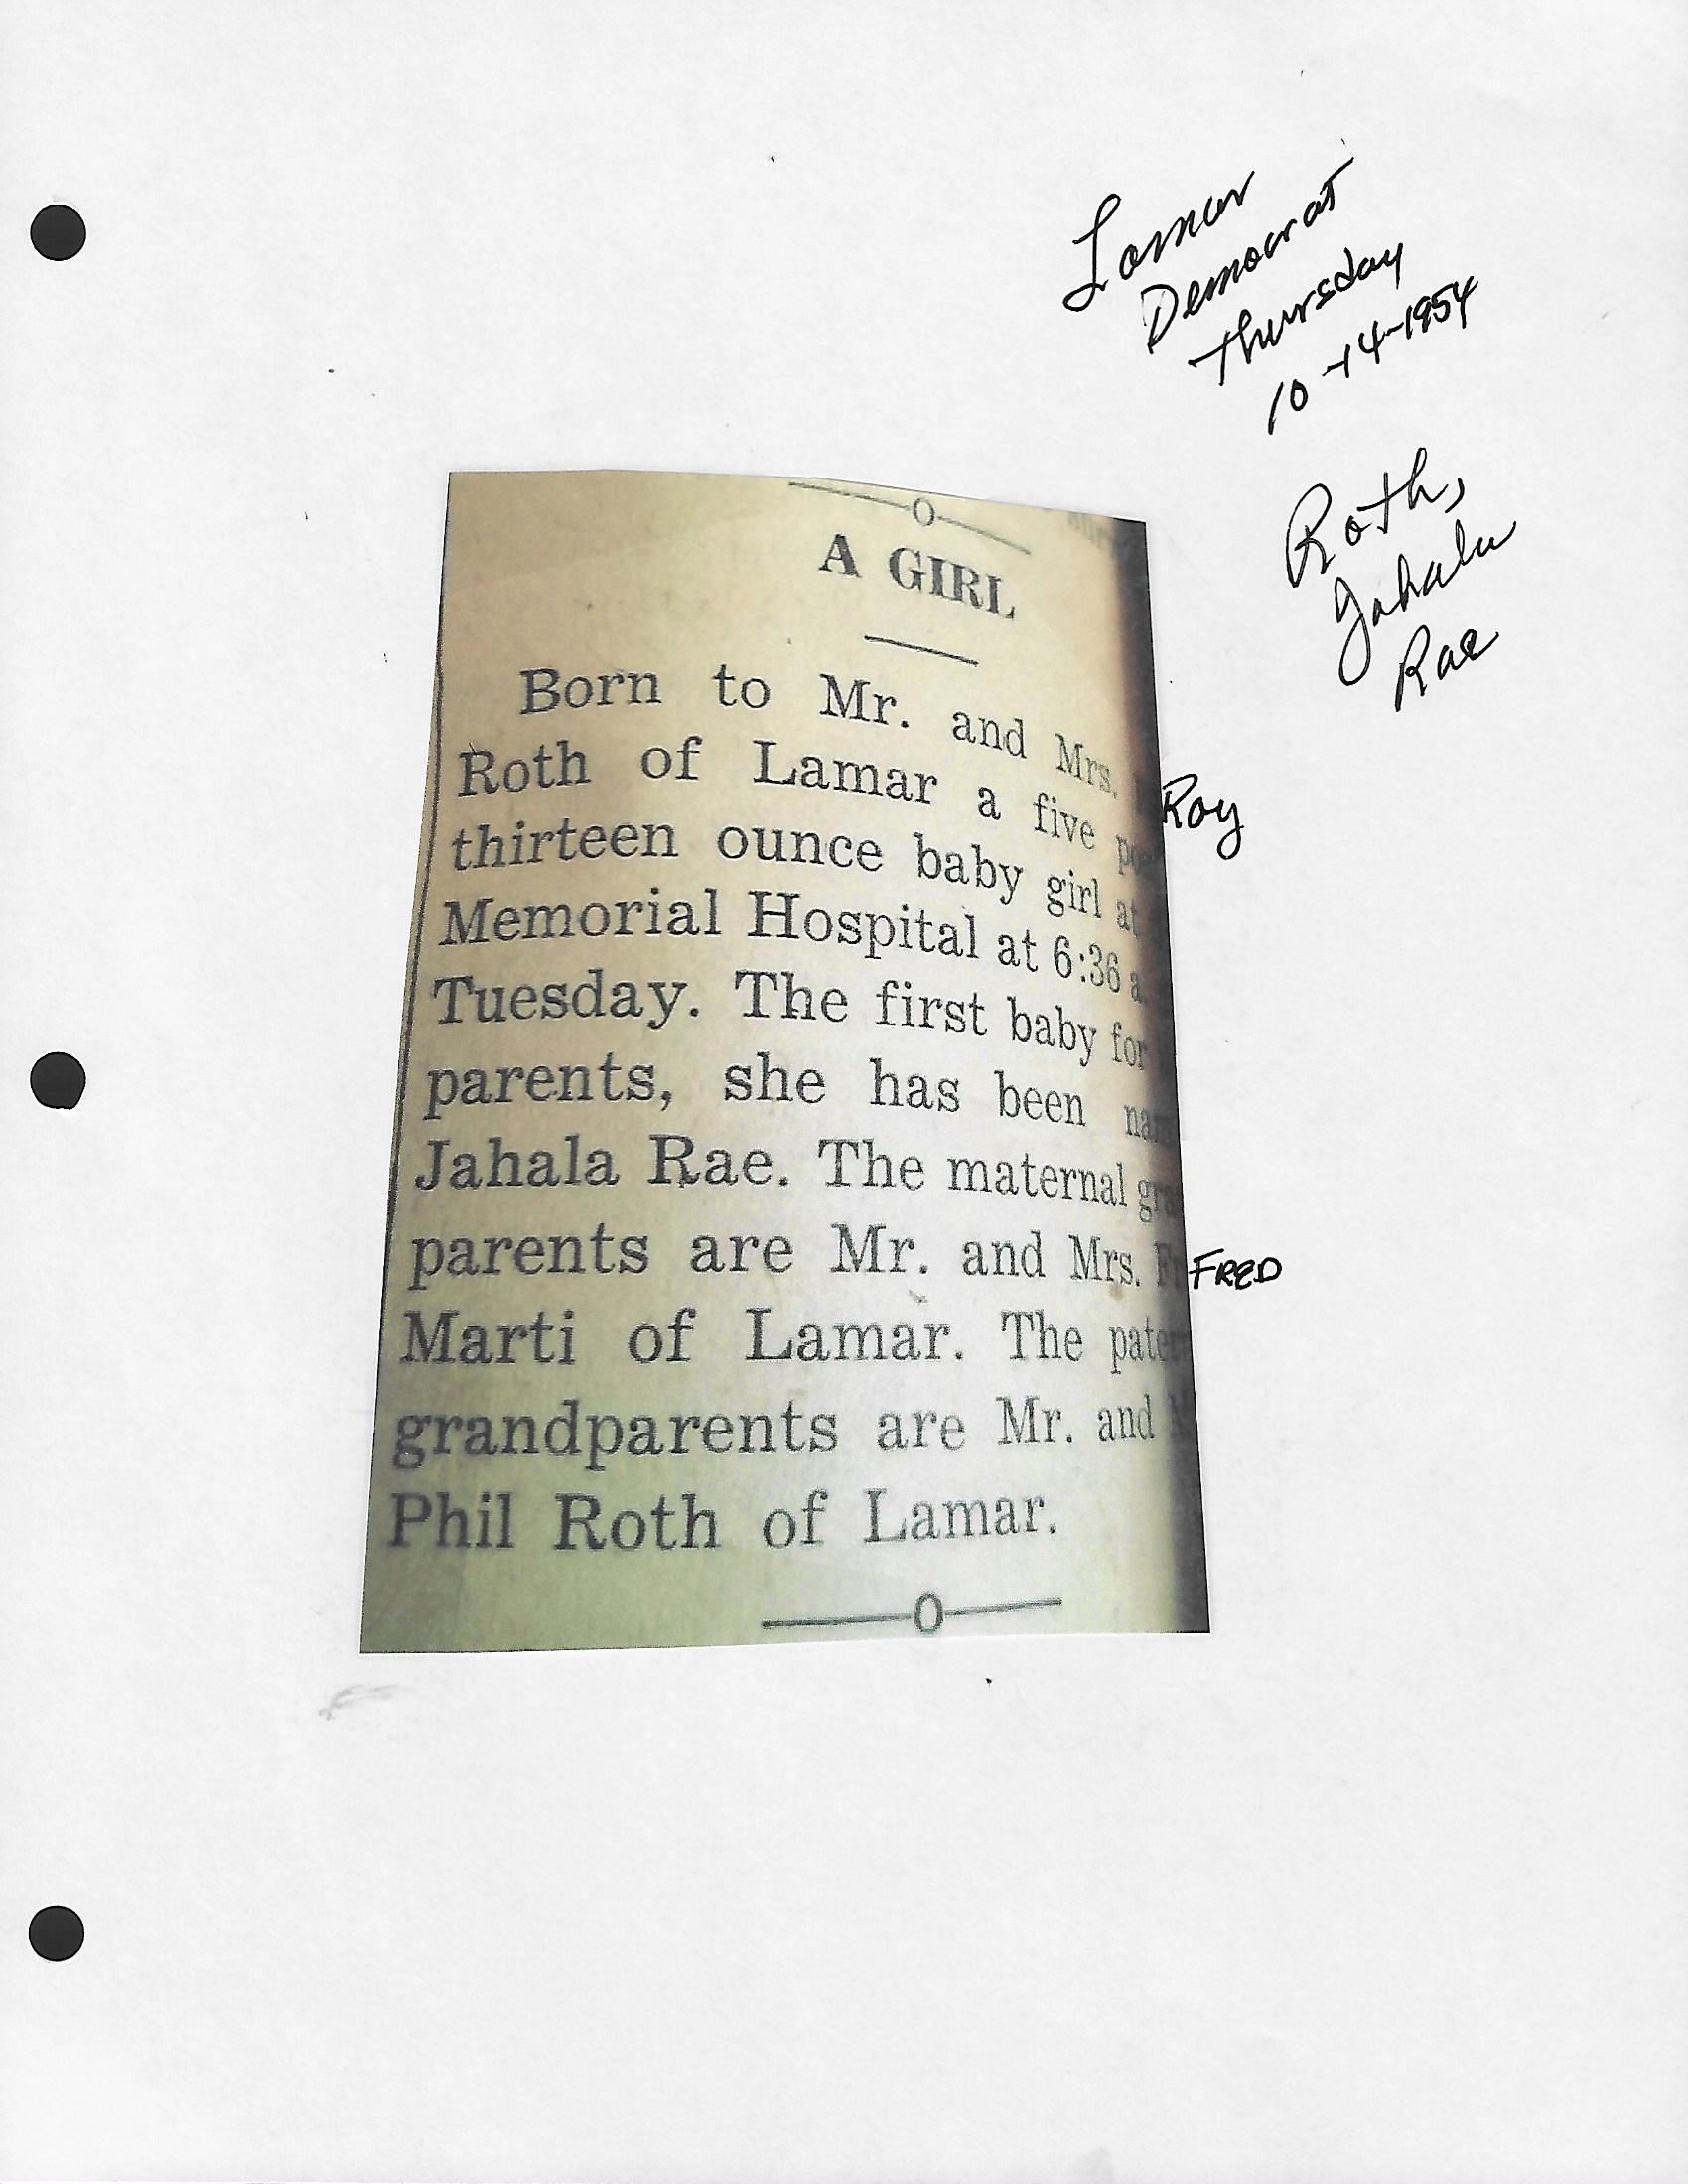 Lamar
Democrat
Thursday
10-14-1954
Roth,
Jahala
Rae
A GIRL
Born to Mr. and Mrs. Roy
Roth of Lamar a five
thirteen ounce baby girl at
Memorial Hospital at 6:36
Tuesday. The first baby for
parents, she has been
Jahala Rae. The maternal
parents are Mr. and Mrs. FRED
Marti of Lamar. The
grandparents are Mr. and
Phil Roth of Lamar.